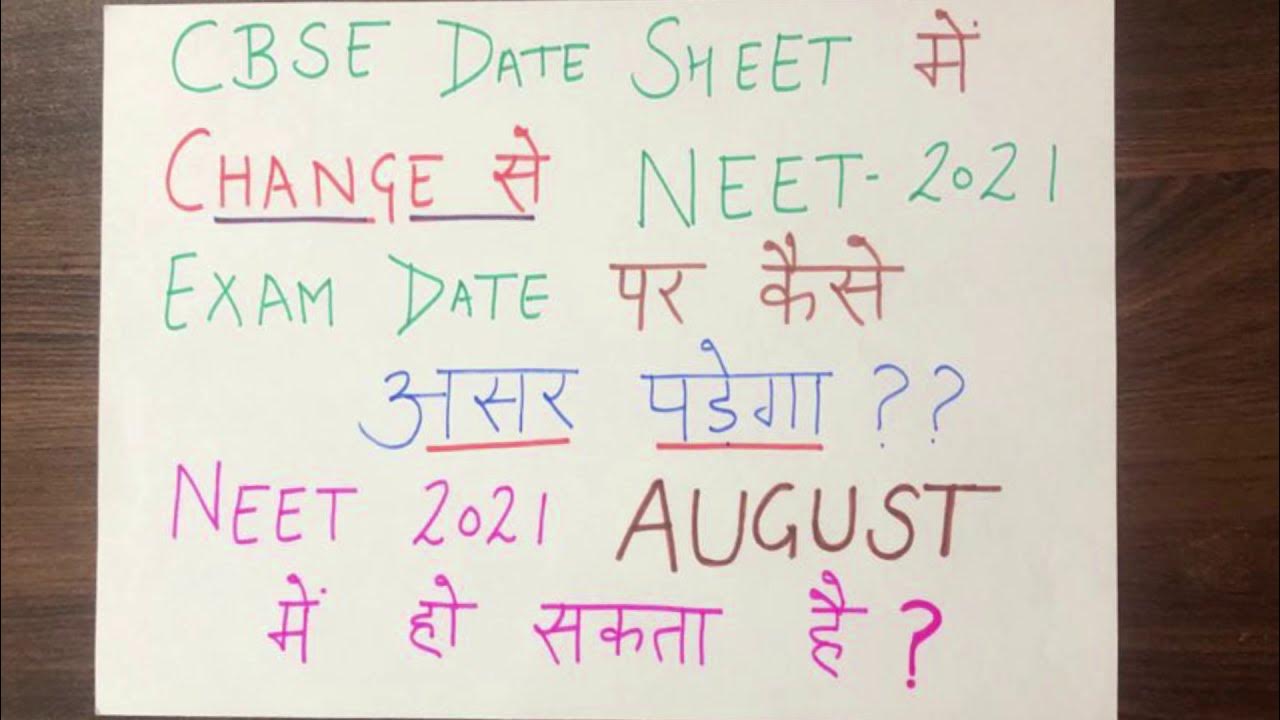 CBSE DATE SHEET में
CHANGE से NEET-2021
EXAM DATE पर कैसे
असर पड़ेगा ??
NEET 2021 AUGUST
में हो सकता है ?